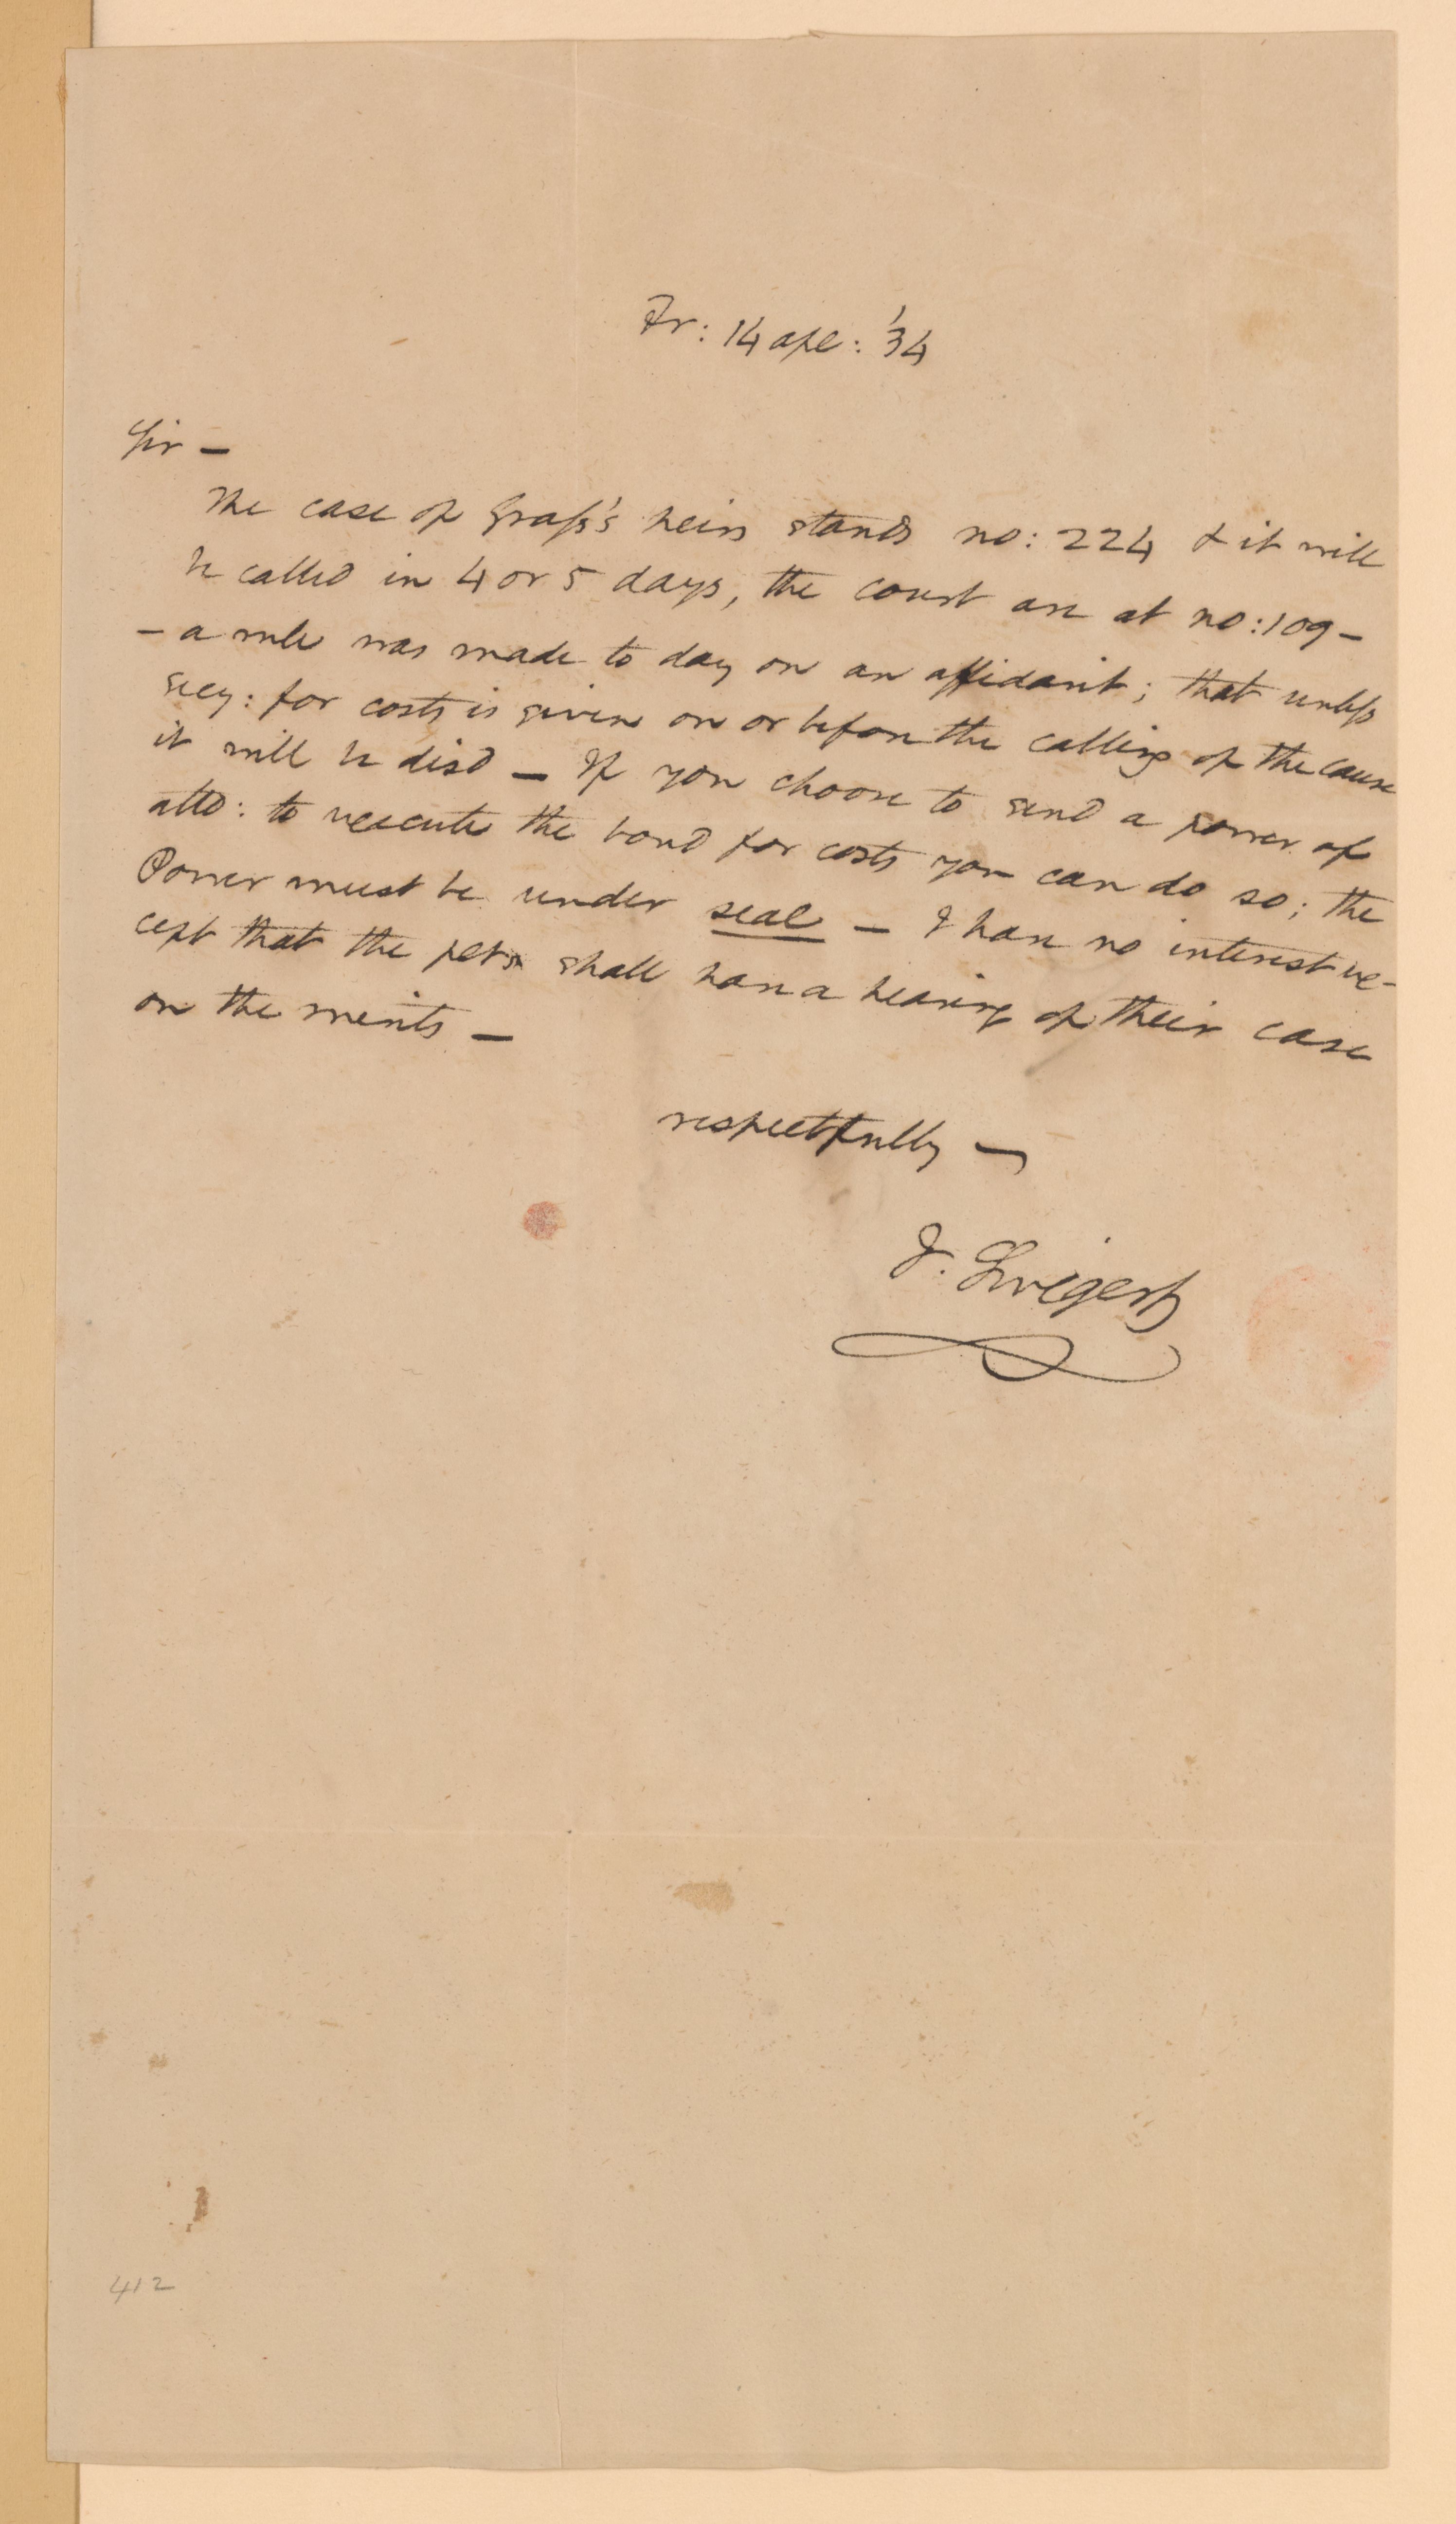 Fr: 14 apl: '34
Sir —
The case of Grass's heirs stands no: 224 & it will
be called in 4 or 5 days, the court are at no: 109 —
— a rule was made to day on an affidavit; that unless
secy: for costs is given on or before the calling of the cause
it will be disd — If you choose to send a power of
atto: to execute the bond for costs you can do so; the
Power must be under seal — I have no interest ex-
cept that the pets shall have a hearing of their case
on the merits —
respectfully —
J. Swigert
412